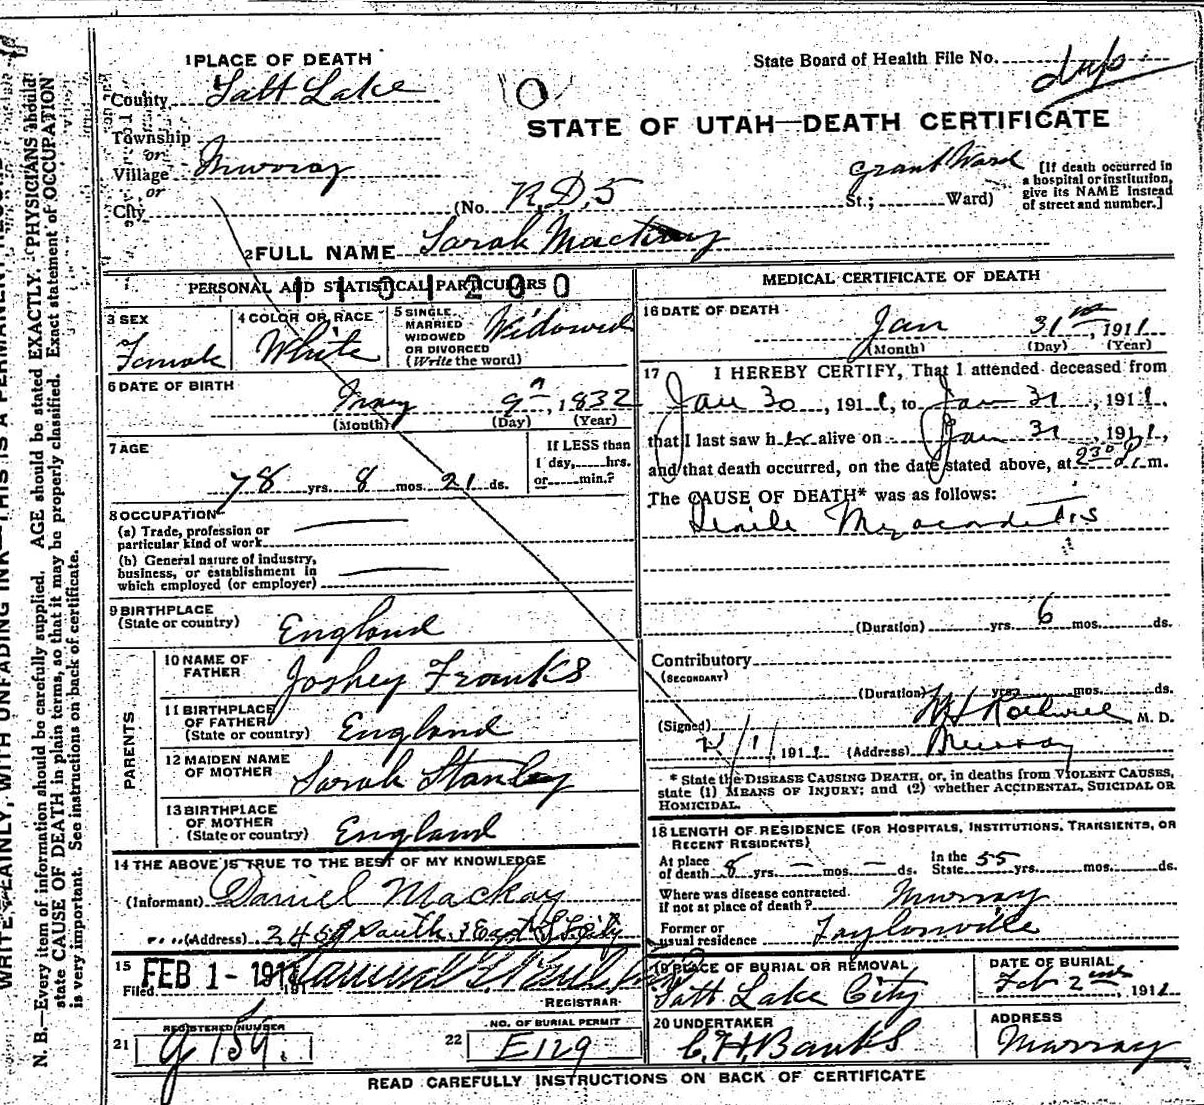 1 PLACE OF DEATH
State Board of Health File No. dup
County Salt Lake
STATE OF UTAH—DEATH CERTIFICATE
Township
or
Village Murray
or
City (No. R.D. 5 St.; Grant Ward Ward)
[If death occurred in
a hospital or institution,
give its NAME instead
of street and number.]
2 FULL NAME Sarah Mackay
PERSONAL AND STATISTICAL PARTICULARS
1101200
3 SEX Female
4 COLOR OR RACE White
5 SINGLE,
MARRIED
WIDOWED
OR DIVORCED
(Write the word)
Widowed
6 DATE OF BIRTH
May 9th, 1832
(Month) (Day) (Year)
7 AGE
78 yrs. 8 mos. 21 ds.
If LESS than
1 day, hrs.
or min.?
8 OCCUPATION
(a) Trade, profession or
particular kind of work
(b) General nature of industry,
business, or establishment in
which employed (or employer)
9 BIRTHPLACE
(State or country) England
PARENTS
10 NAME OF
FATHER Joshey Franks
11 BIRTHPLACE
OF FATHER
(State or country) England
12 MAIDEN NAME
OF MOTHER Sarah Stanley
13 BIRTHPLACE
OF MOTHER
(State or country) England
14 THE ABOVE IS TRUE TO THE BEST OF MY KNOWLEDGE
(Informant) Daniel Mackay
(Address) South East City
15
Filed FEB 1 - 1911
191
REGISTRAR
REGISTERED NUMBER
21 159.
NO. OF BURIAL PERMIT
22 E129
MEDICAL CERTIFICATE OF DEATH
16 DATE OF DEATH
Jan 31 1911
(Month) (Day) (Year)
17 I HEREBY CERTIFY, That I attended deceased from
Jan 30, 1911, to Jan 31, 1911,
that I last saw her alive on Jan 31, 1911,
and that death occurred, on the date stated above, at 230 P. m.
The CAUSE OF DEATH* was as follows:
Senile Myocarditis
(Duration) yrs. 6 mos. ds.
Contributory
(SECONDARY)
(Duration) yrs. mos. ds.
(Signed) M. D.
2/1/, 1911 (Address) Murray
* State the DISEASE CAUSING DEATH, or, in deaths from VIOLENT CAUSES,
state (1) MEANS OF INJURY; and (2) whether ACCIDENTAL, SUICIDAL OR
HOMICIDAL.
18 LENGTH OF RESIDENCE (FOR HOSPITALS, INSTITUTIONS, TRANSIENTS, OR
RECENT RESIDENTS)
At place
of death 8 yrs. — mos. — ds.
In the
State 55 yrs. mos. ds.
Where was disease contracted.
If not at place of death? Murray
Former or
usual residence Taylorsville
19 PLACE OF BURIAL OR REMOVAL
Salt Lake City
DATE OF BURIAL
Feb 2nd, 1911
20 UNDERTAKER
C. H. Banks
ADDRESS
Murray
READ CAREFULLY INSTRUCTIONS ON BACK OF CERTIFICATE
WRITE PLAINLY, WITH UNFADING INK—THIS IS A PERMANENT
N. B.—Every item of information should be carefully supplied. AGE should be stated EXACTLY. PHYSICIANS should
state CAUSE OF DEATH in plain terms, so that it may be properly classified. Exact statement of OCCUPATION
is very important. See instructions on back of certificate.